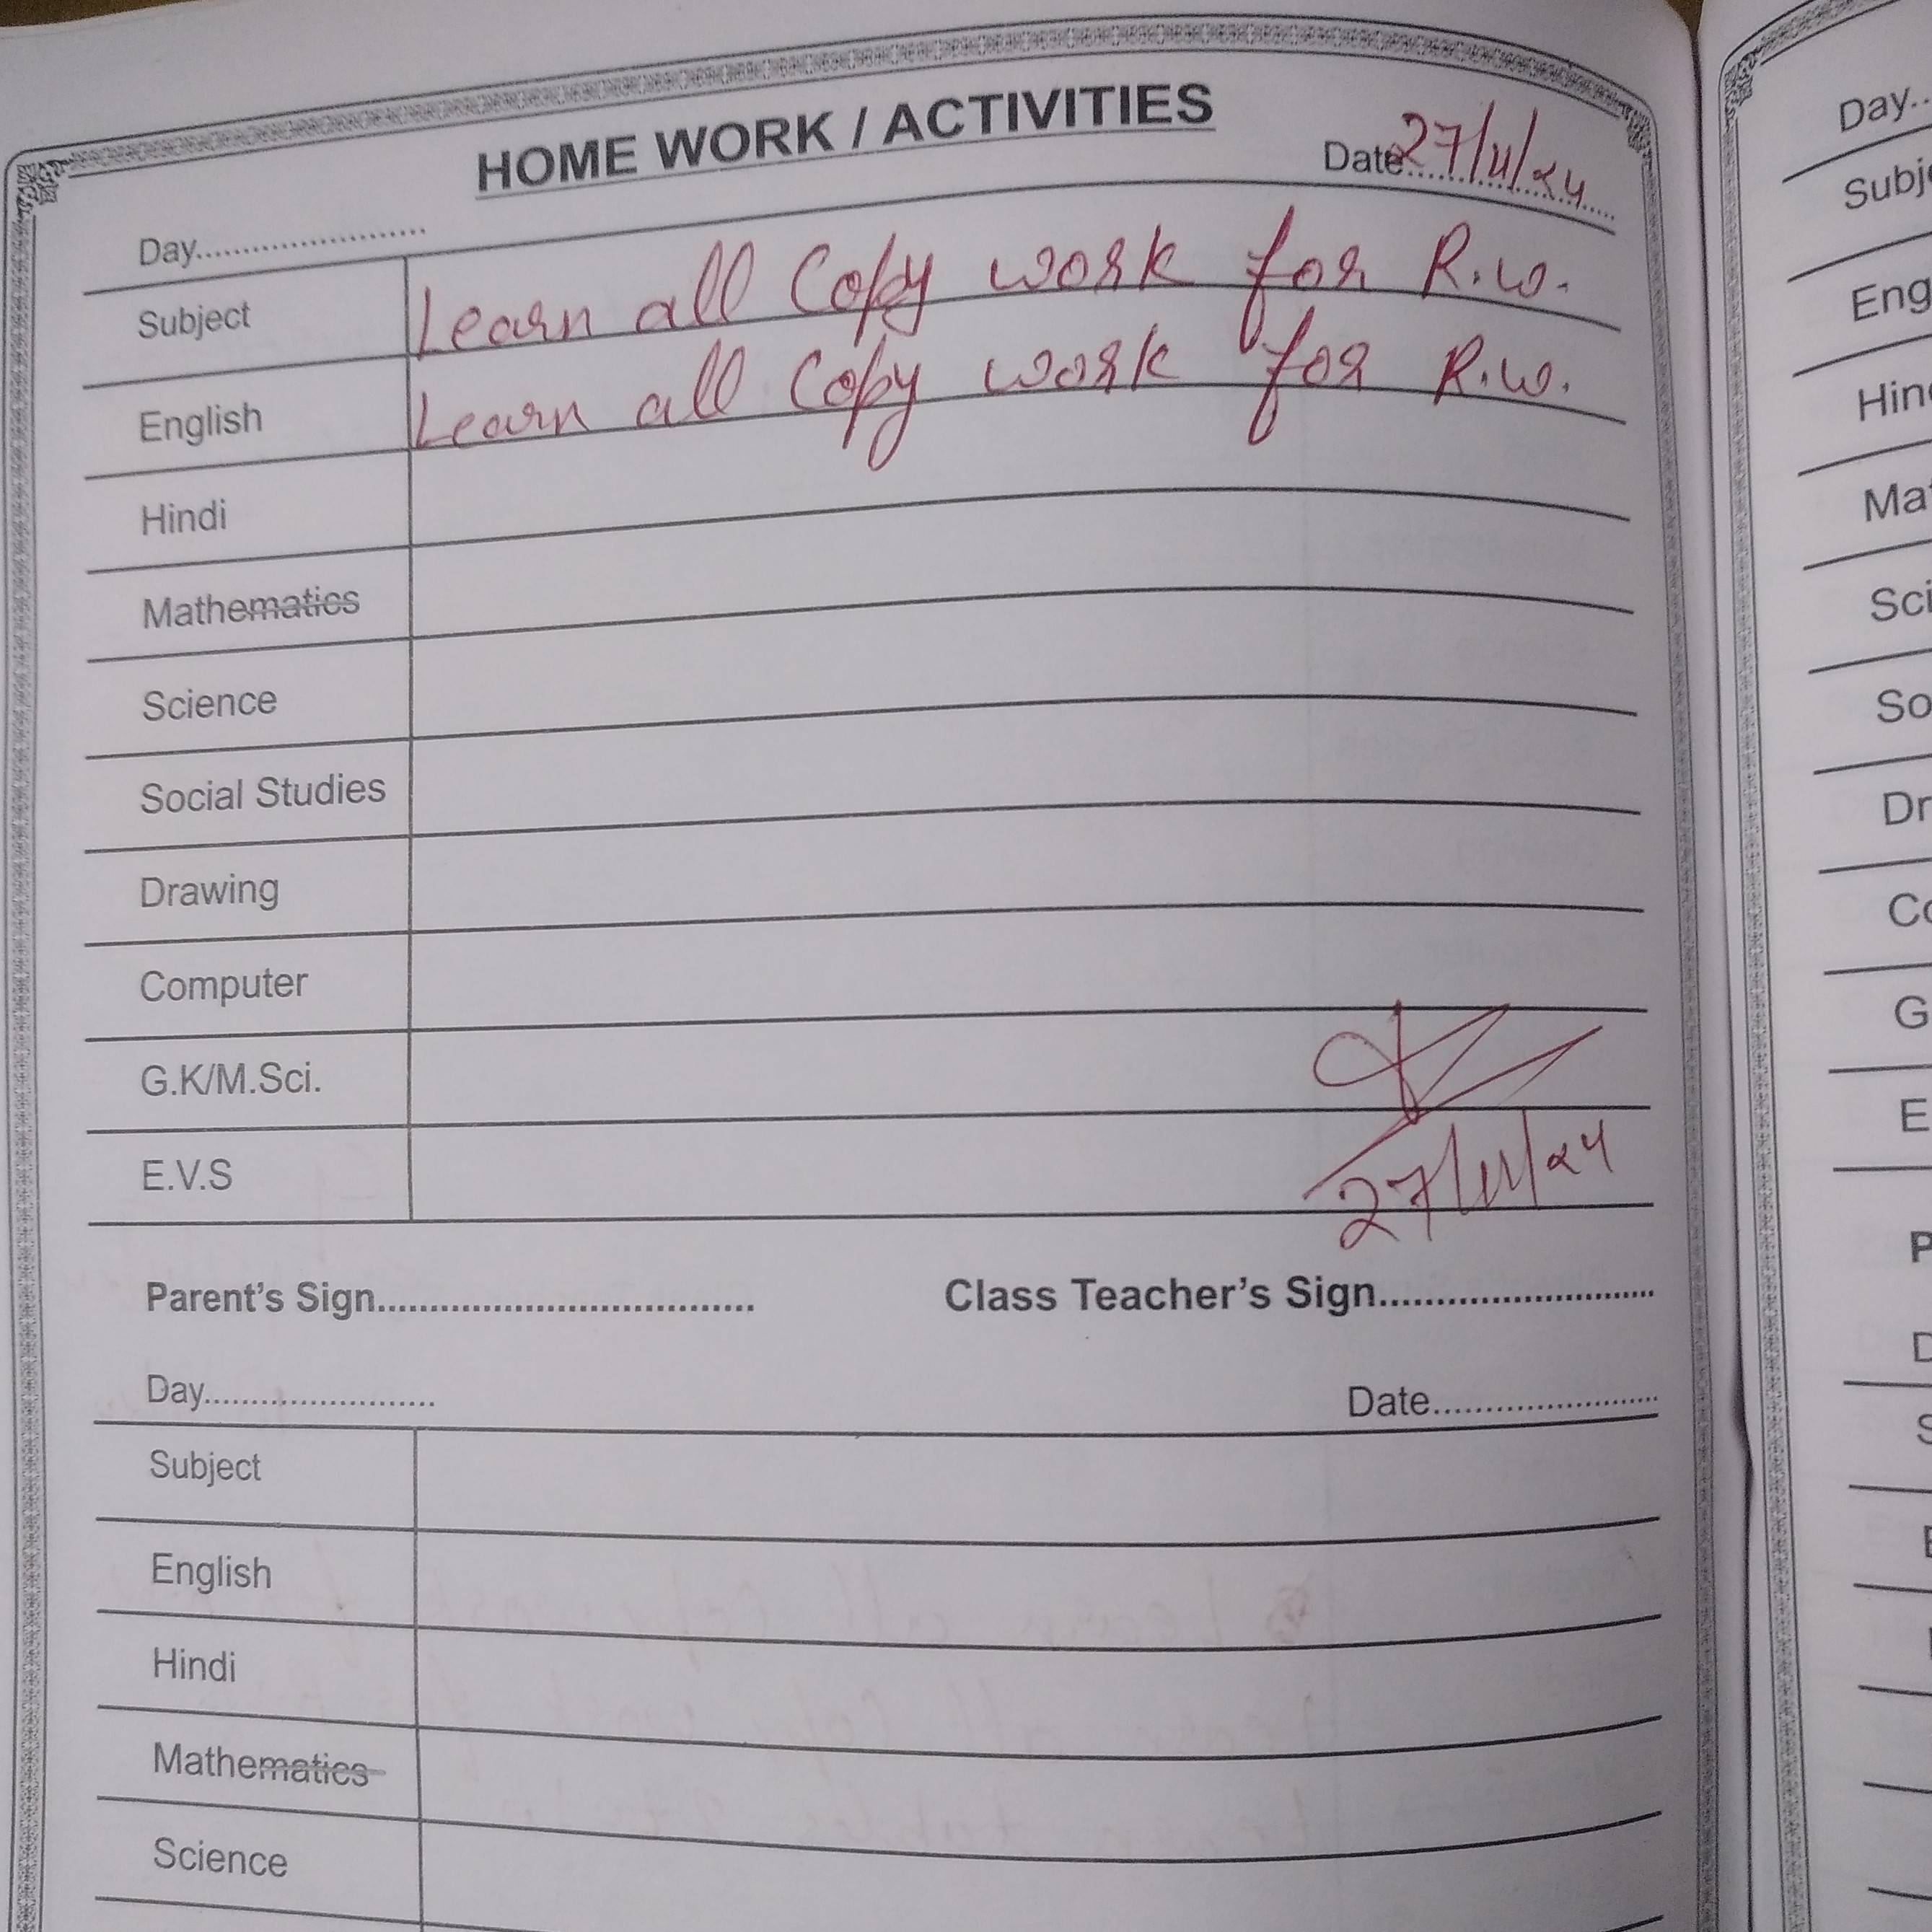 HOME WORK / ACTIVITIES
Day....................... Date 27/11/24
Subject Learn all Copy work for R.W.
English Learn all Copy work for R.W.
Hindi
Mathematics
Science
Social Studies
Drawing
Computer
G.K/M.Sci.
E.V.S 27/11/24
Parent's Sign.................................... Class Teacher's Sign...........................
Day....................... Date.......................
Subject
English
Hindi
Mathematics
Science
Day..